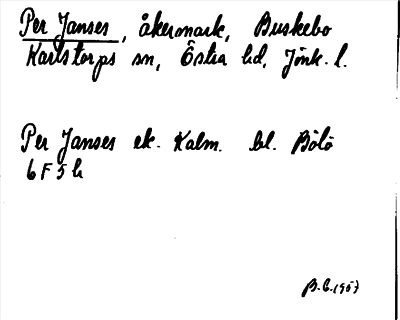 Per Janses, åkeromark, Buskebo
Karlstorps sn, Östra hd, Jönk. l.
Per Janses ek. Kalm. bl. Bölö
6 F 5 h
B.E. 1957